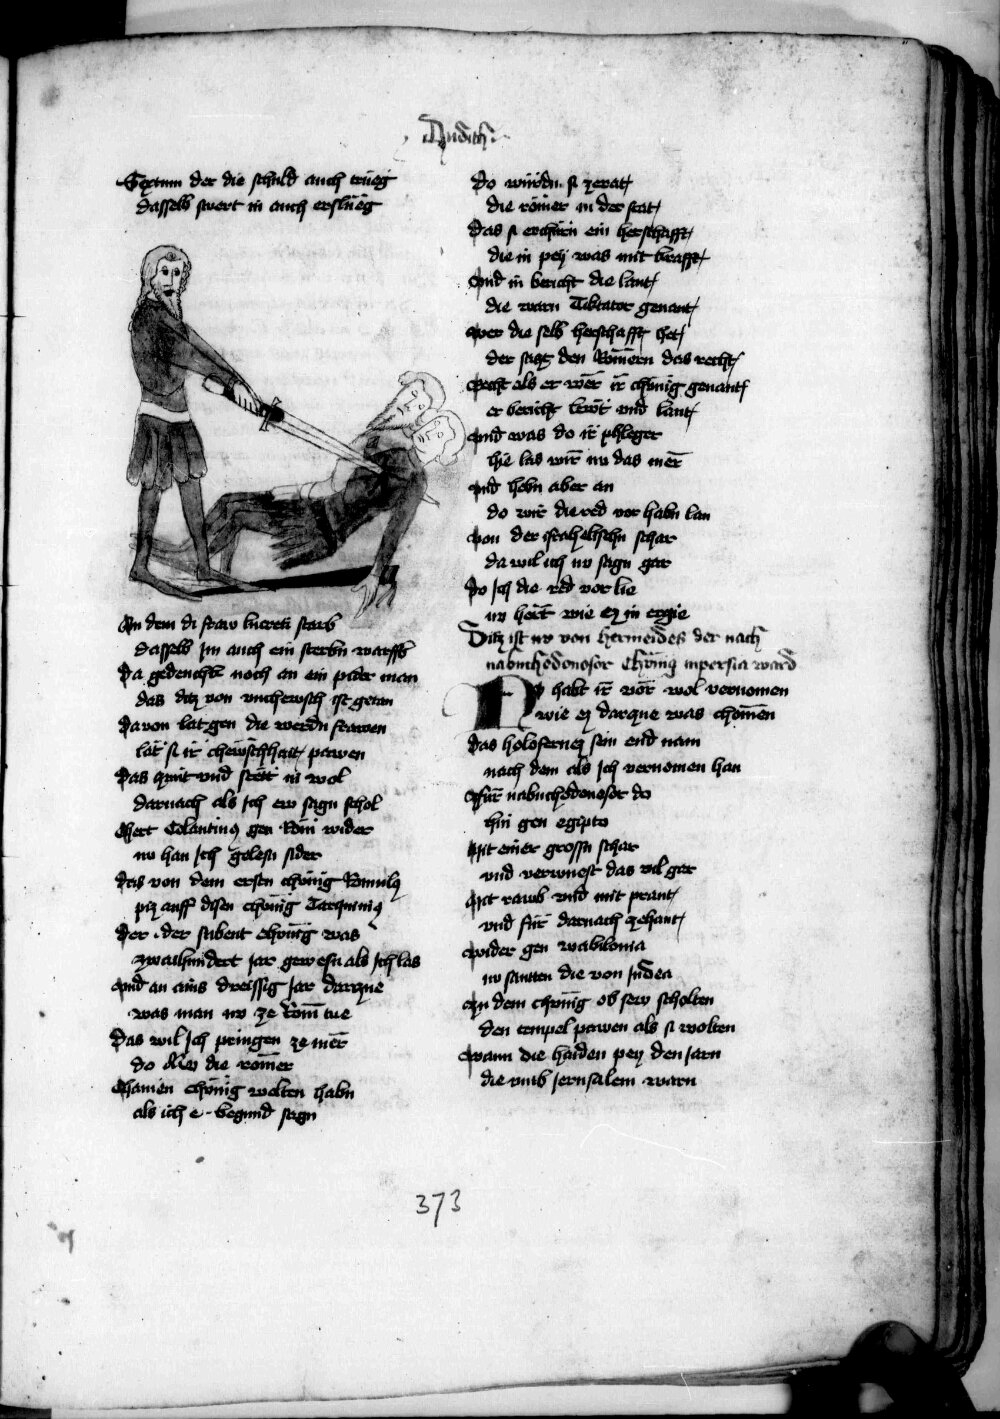 Judith
Sextum der die schuld auch trueg
dasselb swert in auch erslueg
An dem di fraw lucreti starb
dasselb im auch ein sterbn warff
Da gedencht noch an ein pider man
das ditz von vnchewsch ist getan
Da von lat gen die werdn frawen
lat si ir chewschhait pawen
Das zimt vnd stett in wol
darnach als ich ew sagn schol
Chert Colantinus gen Rom wider
nv han ich gelesn sider
Das von dem erstn chönig Romulus
piz auff disen chönig Tarquinius
Der der sibent chönig was
zwaihundert jar gewesn als ich las
vnd an ains dreissig jar darzue
was man nv ze Rom tue
Das wil ich pringen ze mer
do die römer
Chainen chönig wolten habn
als ich e begund sagn
Do würdn si zerat
die römer in der stat
Das si erchürn ein herschafft
die in pey was mit krafft
vnd in bericht die lant
die warn Tiktator genant
wer die selb herschafft het
der sagt den Römern das recht
Recht als er wer ir chönig genant
er bericht lewt vnd lant
vnd was do ir phleger
hie las wir nv das mer
vnd hebn aber an
do wir die red vor habn lan
von der israhelischn schar
da wil ich nv sagn gar
Do ich die red vor lie
nv hört wie ez in ergie
Ditz ist nv von hermeides der nach
nabuchodonosor chönig in persia ward
Nv habt ir vor wol vernomen
wie ez darzue was chomen
Das holofernez sein end nam
nach dem als ich vernomen han
fur nabuchodonosor do
hin gen egipto
Mit einer grossn schar
vnd verwuest das vil gar
Mit rawb vnd mit prant
vnd fur darnach zehant
wider gen wabilonia
nv santten die von judea
Zu dem chönig ob sew scholten
den tempel pawen als si wolten
wann die haiden pey den jarn
die vmb jerusalem warn
373